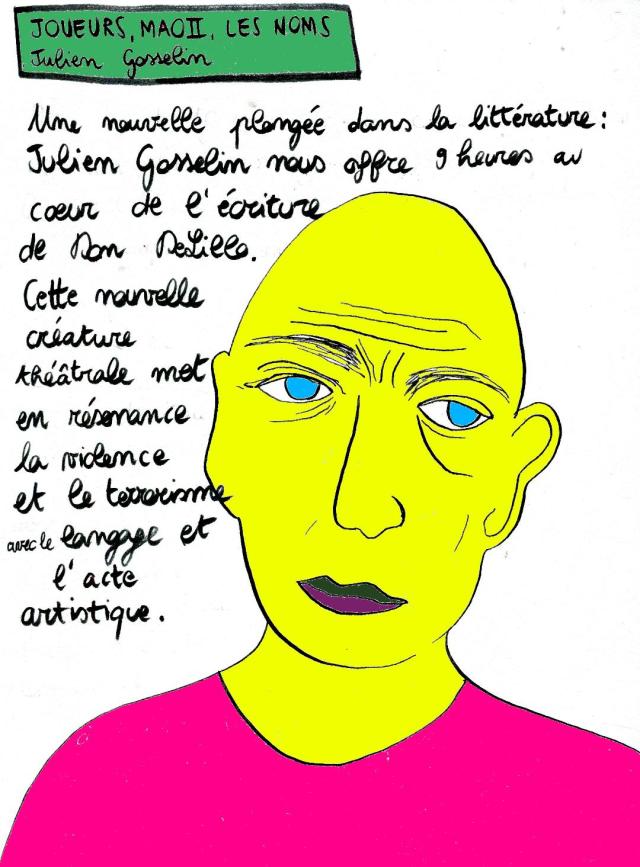 JOUEURS, MAO II, LES NOMS
Julien Gosselin
Une nouvelle plongée dans la littérature :
Julien Gosselin nous offre 9 heures au
coeur de l'écriture
de Don DeLillo.
Cette nouvelle
créature
théâtrale met
en résonance
la violence
et le terrorisme
avec le langage et
l'acte
artistique.